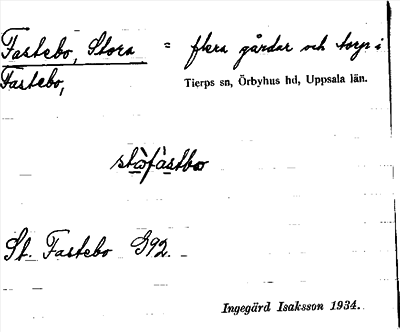 Fastebo, Stora = flera gårdar och torp i
Fastebo, Tierps sn, Örbyhus hd, Uppsala län.
St. Fastebo G92.
Ingegärd Isaksson 1934.